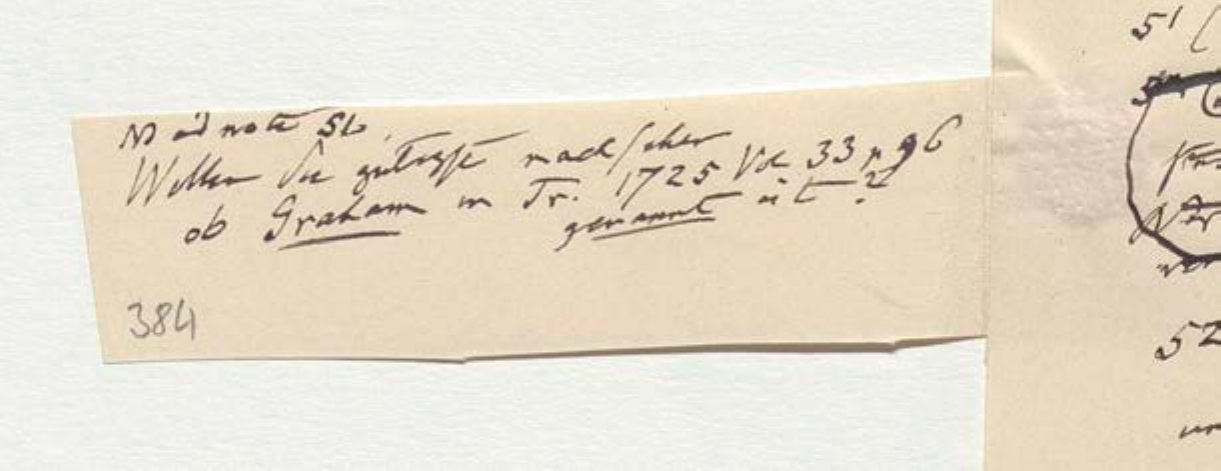 ad note 51
Wollen Sie gütigst nachsehen
ob Graham in Tr. 1725 Vol 33 p 96
genannt ist?
384
51 (
52